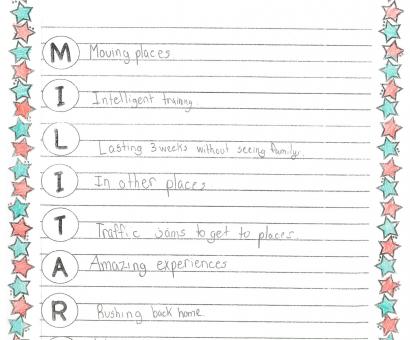 M Moving places
I Intelligent training
L Lasting 3 weeks without seeing family
I In other places
T Traffic jams to get to places.
A Amazing experiences
R Rushing back home